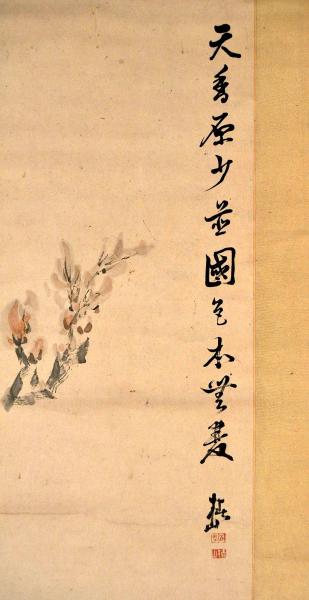 天香原少並國色本無雙
椿山